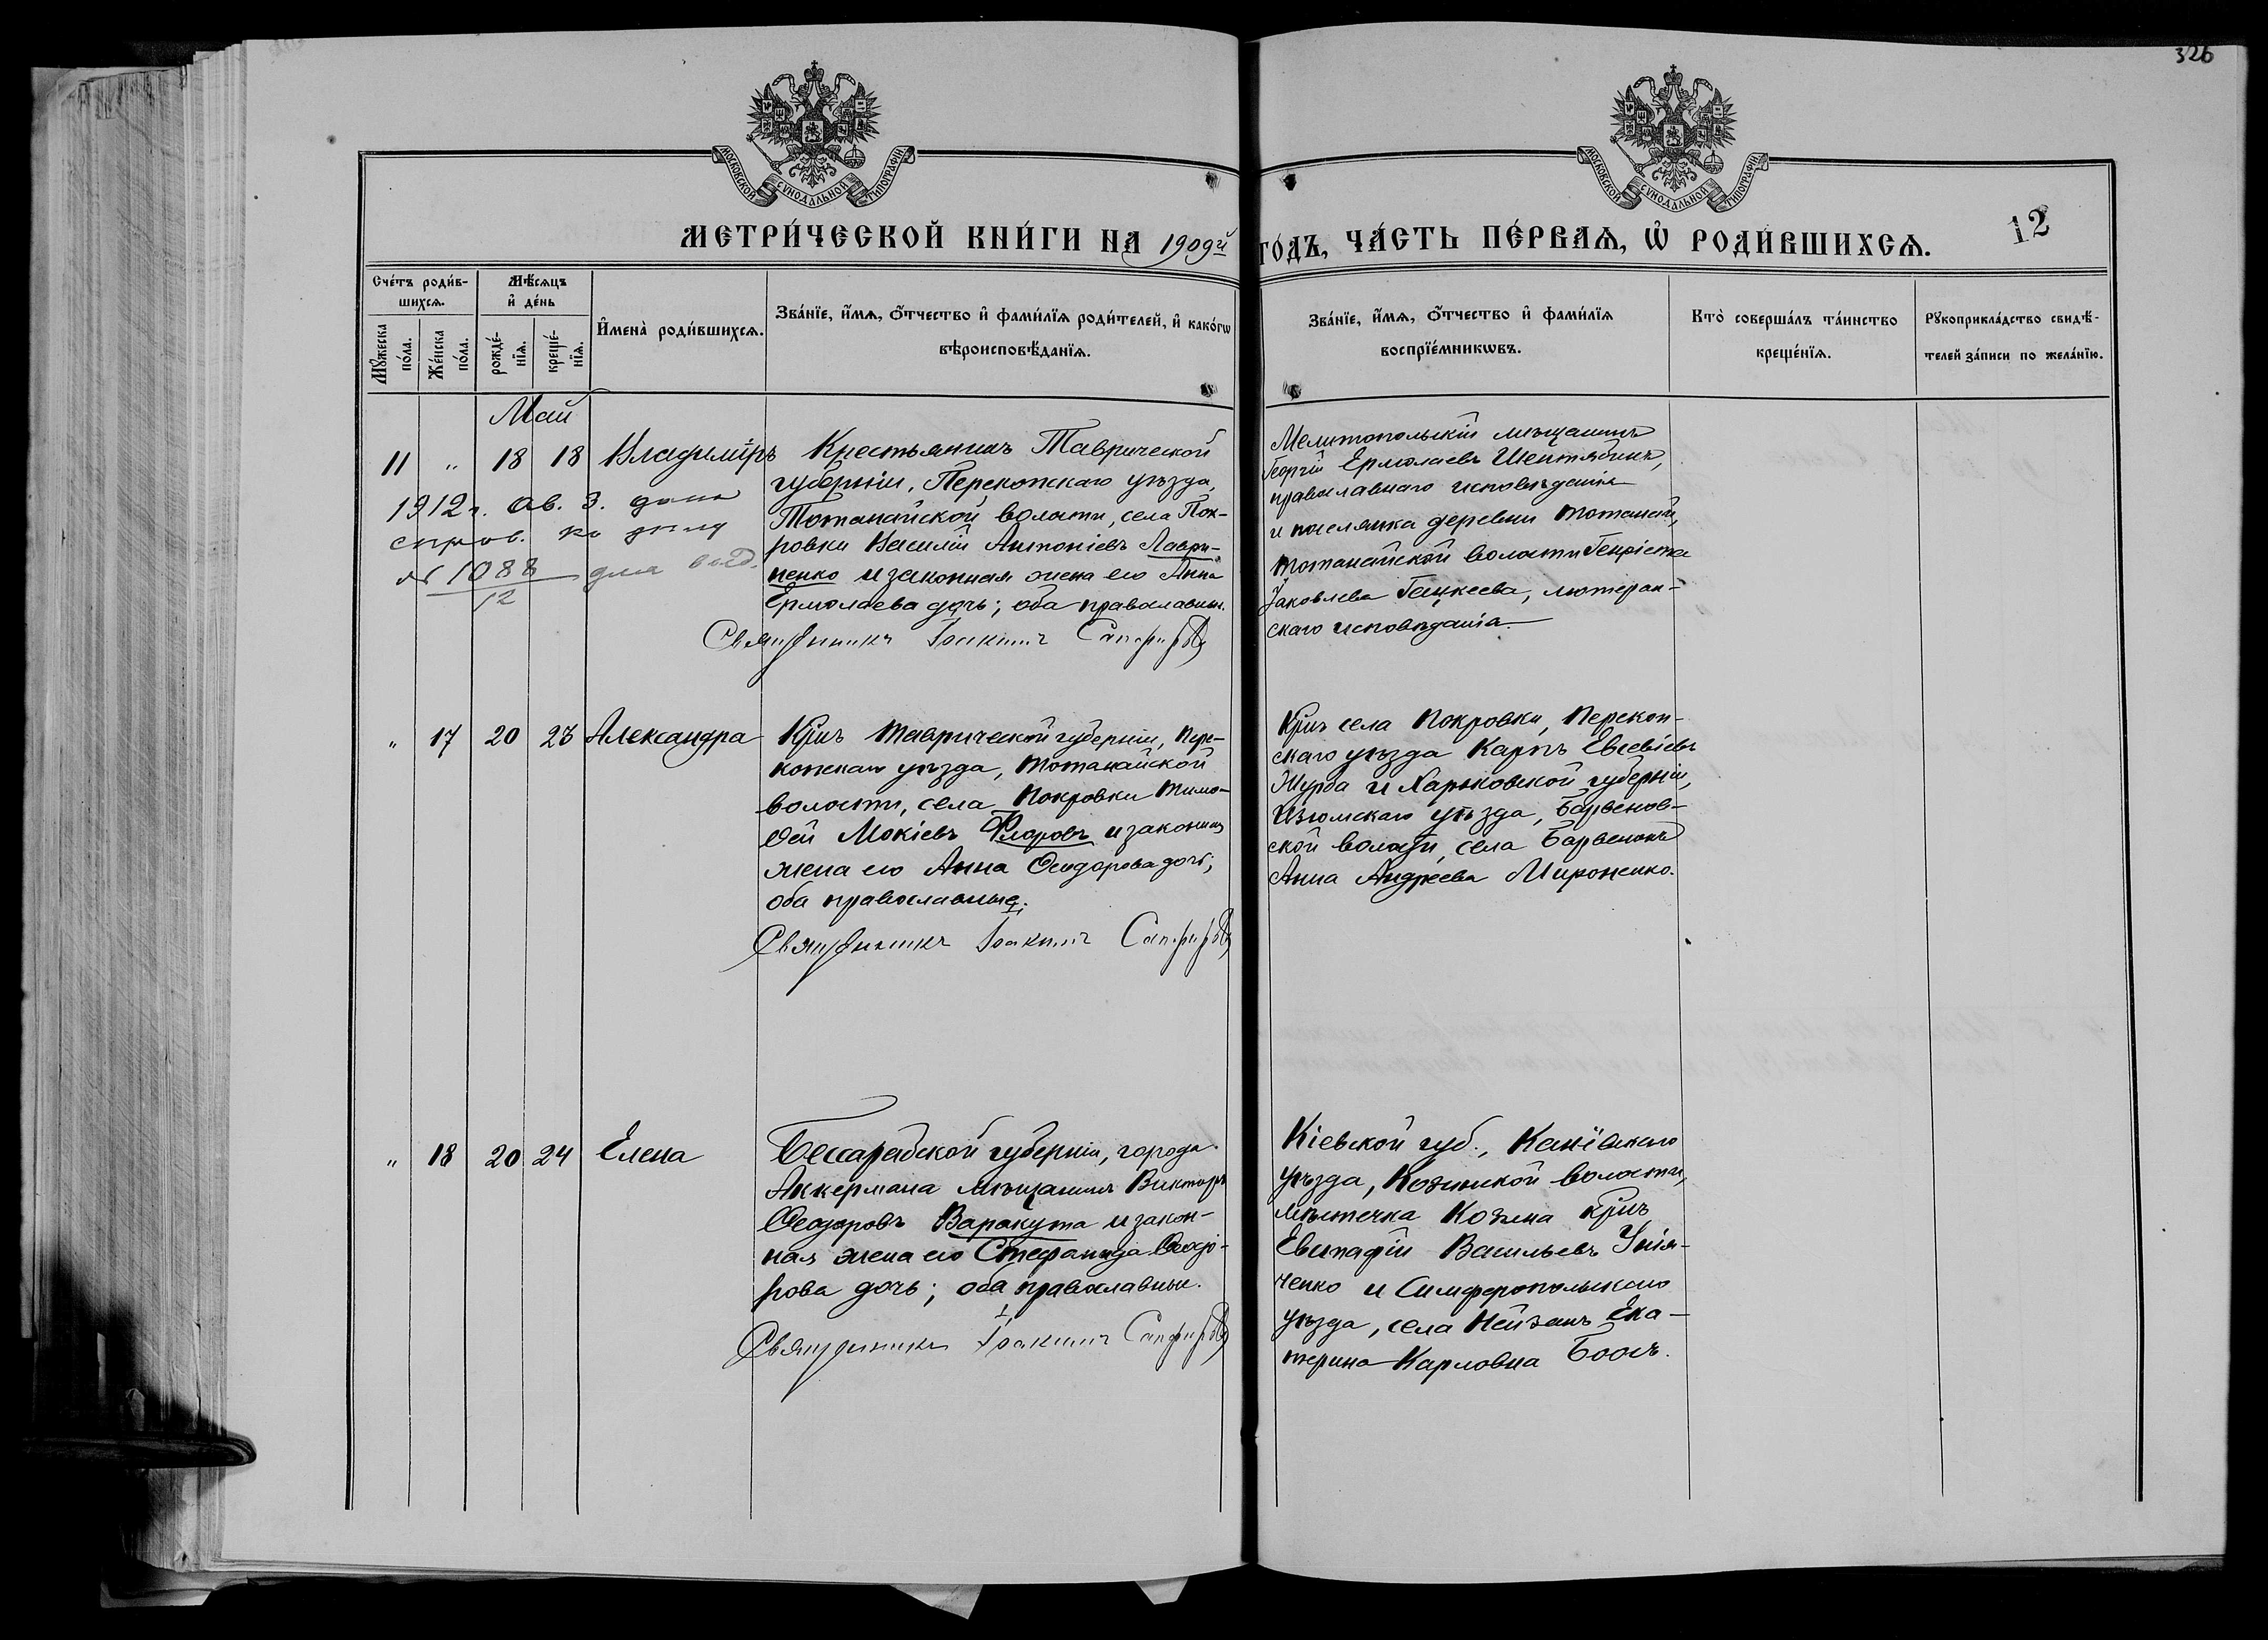 326
МОСКОВСКОЙ СУНОДАЛЬНОЙ ТИПОГРАФІИ
МОСКОВСКОЙ СУНОДАЛЬНОЙ ТИПОГРАФІИ
МЕТРИ́ЧЕСКОЙ КНИ́ГИ НА 1909й ГО́ДЪ, ЧА́СТЬ ПЕ́РВАѦ, Ѡ҆ РОДИ́ВШИХСѦ.
12
Сче́тъ роди́в-
шихсѧ.
Мꙋ́жеска по́ла.
Же́нска по́ла.
Мѣ́сѧцъ
и҆ де́нь
рожде́-
нїѧ.
креще́-
нїѧ.
И҆мена̀ роди́вшихсѧ.
Зва́нїе, и҆́мѧ, ѻ҆́тчество и҆ фами́лїѧ роди́телей, и҆ како́гѡ
вѣроисповѣ́данїѧ.
Зва́нїе, и҆́мѧ, ѻ҆́тчество и҆ фами́лїѧ
воспрїе́мникѡвъ.
Кто̀ соверша́лъ та́инство
креще́нїѧ.
Рꙋкоприкла́дство свидѣ́-
телей за́писи по жела́нїю.
Май
11 " 18 18 Владиміръ
1912 г. ав. 3. дана
справ.
№ 1088
12
для
Крестьянинъ Таврической
губерніи, Перекопскаго уѣзда,
Тотанайской волости, села Пок-
ровки Василій Антоніевъ Лаври-
ненко и законная жена его Анна
Ермолаева дочь; оба православные.
Священникъ Іоакимъ Сапфировъ
Мелитопольскій мѣщанинъ
Георгій Ермолаевъ
православнаго исповѣданія
и поселянка деревни Тотанай,
Тотанайской волости Генріета
Яковлева Гецкеева, лютеран-
скаго исповѣданія.
" 17 20 23 Александра
Кр͠нъ Таврической губерніи, Пере-
копскаго уѣзда, Тотанайской
волости, села Покровки Тимо-
ѳей Мокіевъ Флоровъ и законная
жена его Анна Ѳеодорова дочь;
оба православные.
Священникъ Іоакимъ Сапфировъ
Кр͠нъ села Покровки, Перекоп-
скаго уѣзда Карпъ Евсевіевъ
Журба и Харьковской губерніи,
Изюмскаго уѣзда, Барвенов-
ской волости, села Барвенокъ
Анна Андреева Мироненко.
" 18 20 24 Елена
Бессарабской губерніи, города
Аккермана мѣщанинъ Викторъ
Ѳеодоровъ Варакута и закон-
ная жена его Стефанида Ѳеодо-
рова дочь; оба православные.
Священникъ Іоакимъ Сапфировъ
Кіевской губ., Канівскаго
уѣзда, Козинской волости,
мѣстечка Козина кр͠нъ
Евстафій Васильевъ Унія-
ченко и Симферопольскаго
уѣзда, села Нейзацъ Ека-
терина Карловна Боосъ.